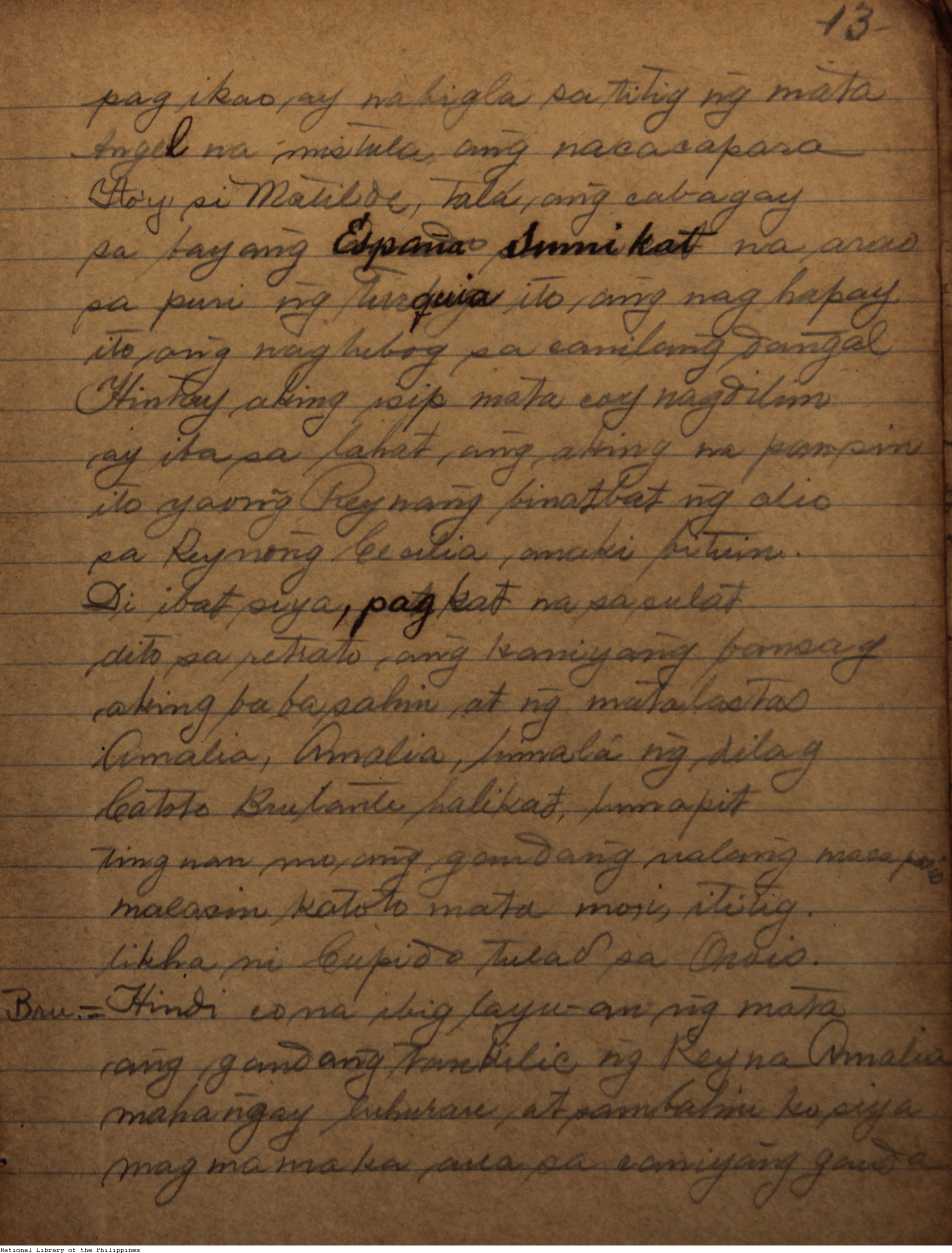 -13-
pag ikao, ay nabigla sa titig ng mata
Angel na mistula, ang nacacapara
Ito'y, si Matilde, tala, ang cabagay
sa bayang España sumikat na arao
sa puri ng turquia ito, ang nag hapay
ito, ang nag lubog sa canilang dangal
Hintay aking isip mata coy nagdilim
ay iba sa lahat, ang aking na pansin
ito yaong Reynang binatbat ng alio
sa Reynong Cecilia anaki bituin.
Di ibat siya, pagkat na sasulat
dito sa retrato, ang kaniyang bansag
aking babasahin at ng matalastas
Amalia, Amalia, lumalá ng dilag
Catoto Brulante halikat, lumapit
ting nan mo, ang gandang ualang maca paris
malasin katoto mata mosi, ititig.
likha ni Cupido tulad sa
Bru.= Hindi co na ibig layu-an ng mata
ang gandang ng Reyna Amalia
mahangay luhuran, at sambahin ko siya
mag mamaka aua sa caniyang ganda
National Library of the Philippines